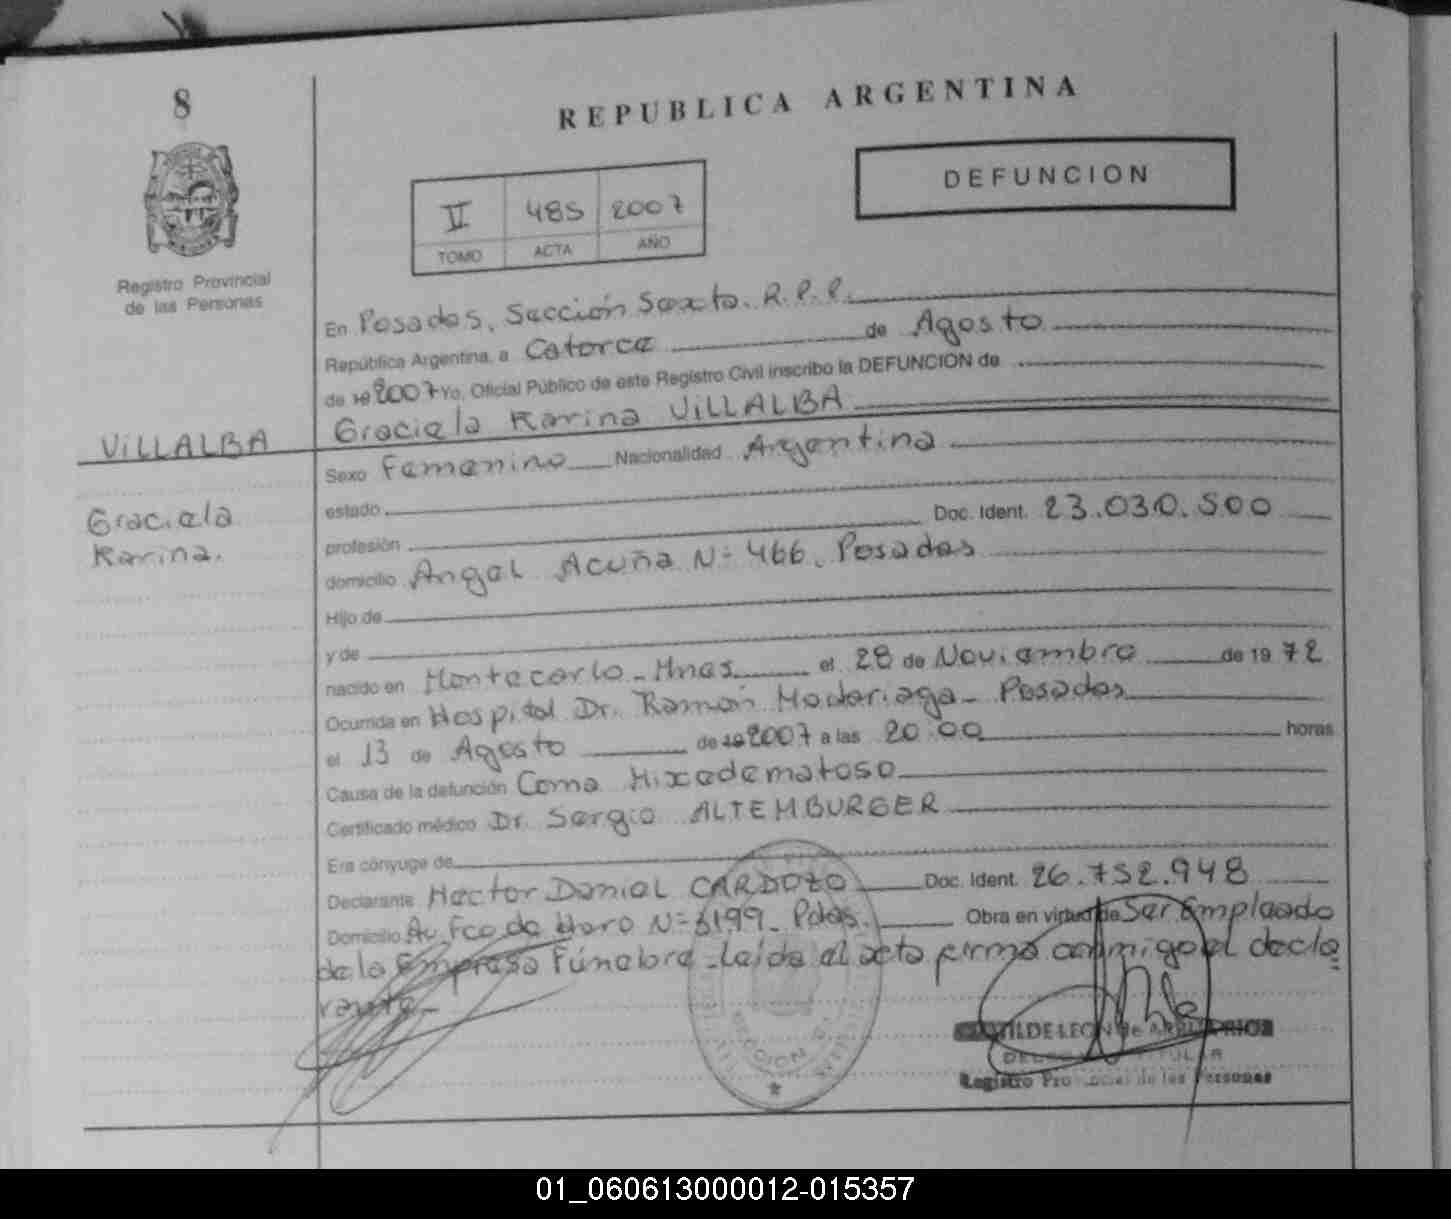 8
REPUBLICA ARGENTINA
DEFUNCION
II 485 2007
TOMO ACTA AÑO
Registro Provincial
de las Personas
En Posadas, Sección Sexta. R.P.P.
República Argentina, a Catorce de Agosto
de 19 2007 Yo, Oficial Público de este Registro Civil inscribo la DEFUNCION de
Graciela Karina VILLALBA
VILLALBA
Graciela
Karina.
Sexo Femenino Nacionalidad Argentina
estado
profesión Doc. Ident. 23.030.500
domicilio Angel Acuña Nº 466. Posadas
Hijo de
y de
nacido en Montecarlo - Mnes el 28 de Noviembre de 19 72
Ocurrida en Hospital Dr. Ramón Madariaga - Posadas
el 13 de Agosto de 19 2007 a las 20.00 horas
Causa de la defunción Coma Mixedematoso
Certificado médico Dr. Sergio ALTEMBURGER
Era cónyuge de
Declarante Hector Daniel CARDOZO Doc. Ident. 26.752.948
Domicilio Av. Fco de Haro Nº 3199 - Pdas. Obra en virtud de Ser Empleado
de la Empresa Fúnebre - Leída el acta firma conmigo el decla
rante -
SECCION
DE LEON de
TITULAR
Registro Provincial de las Personas
01_060613000012-015357